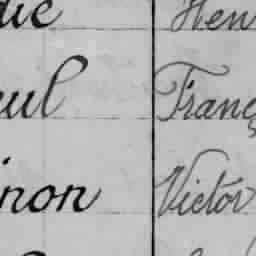 die Hen
eul Franç
inon Victor